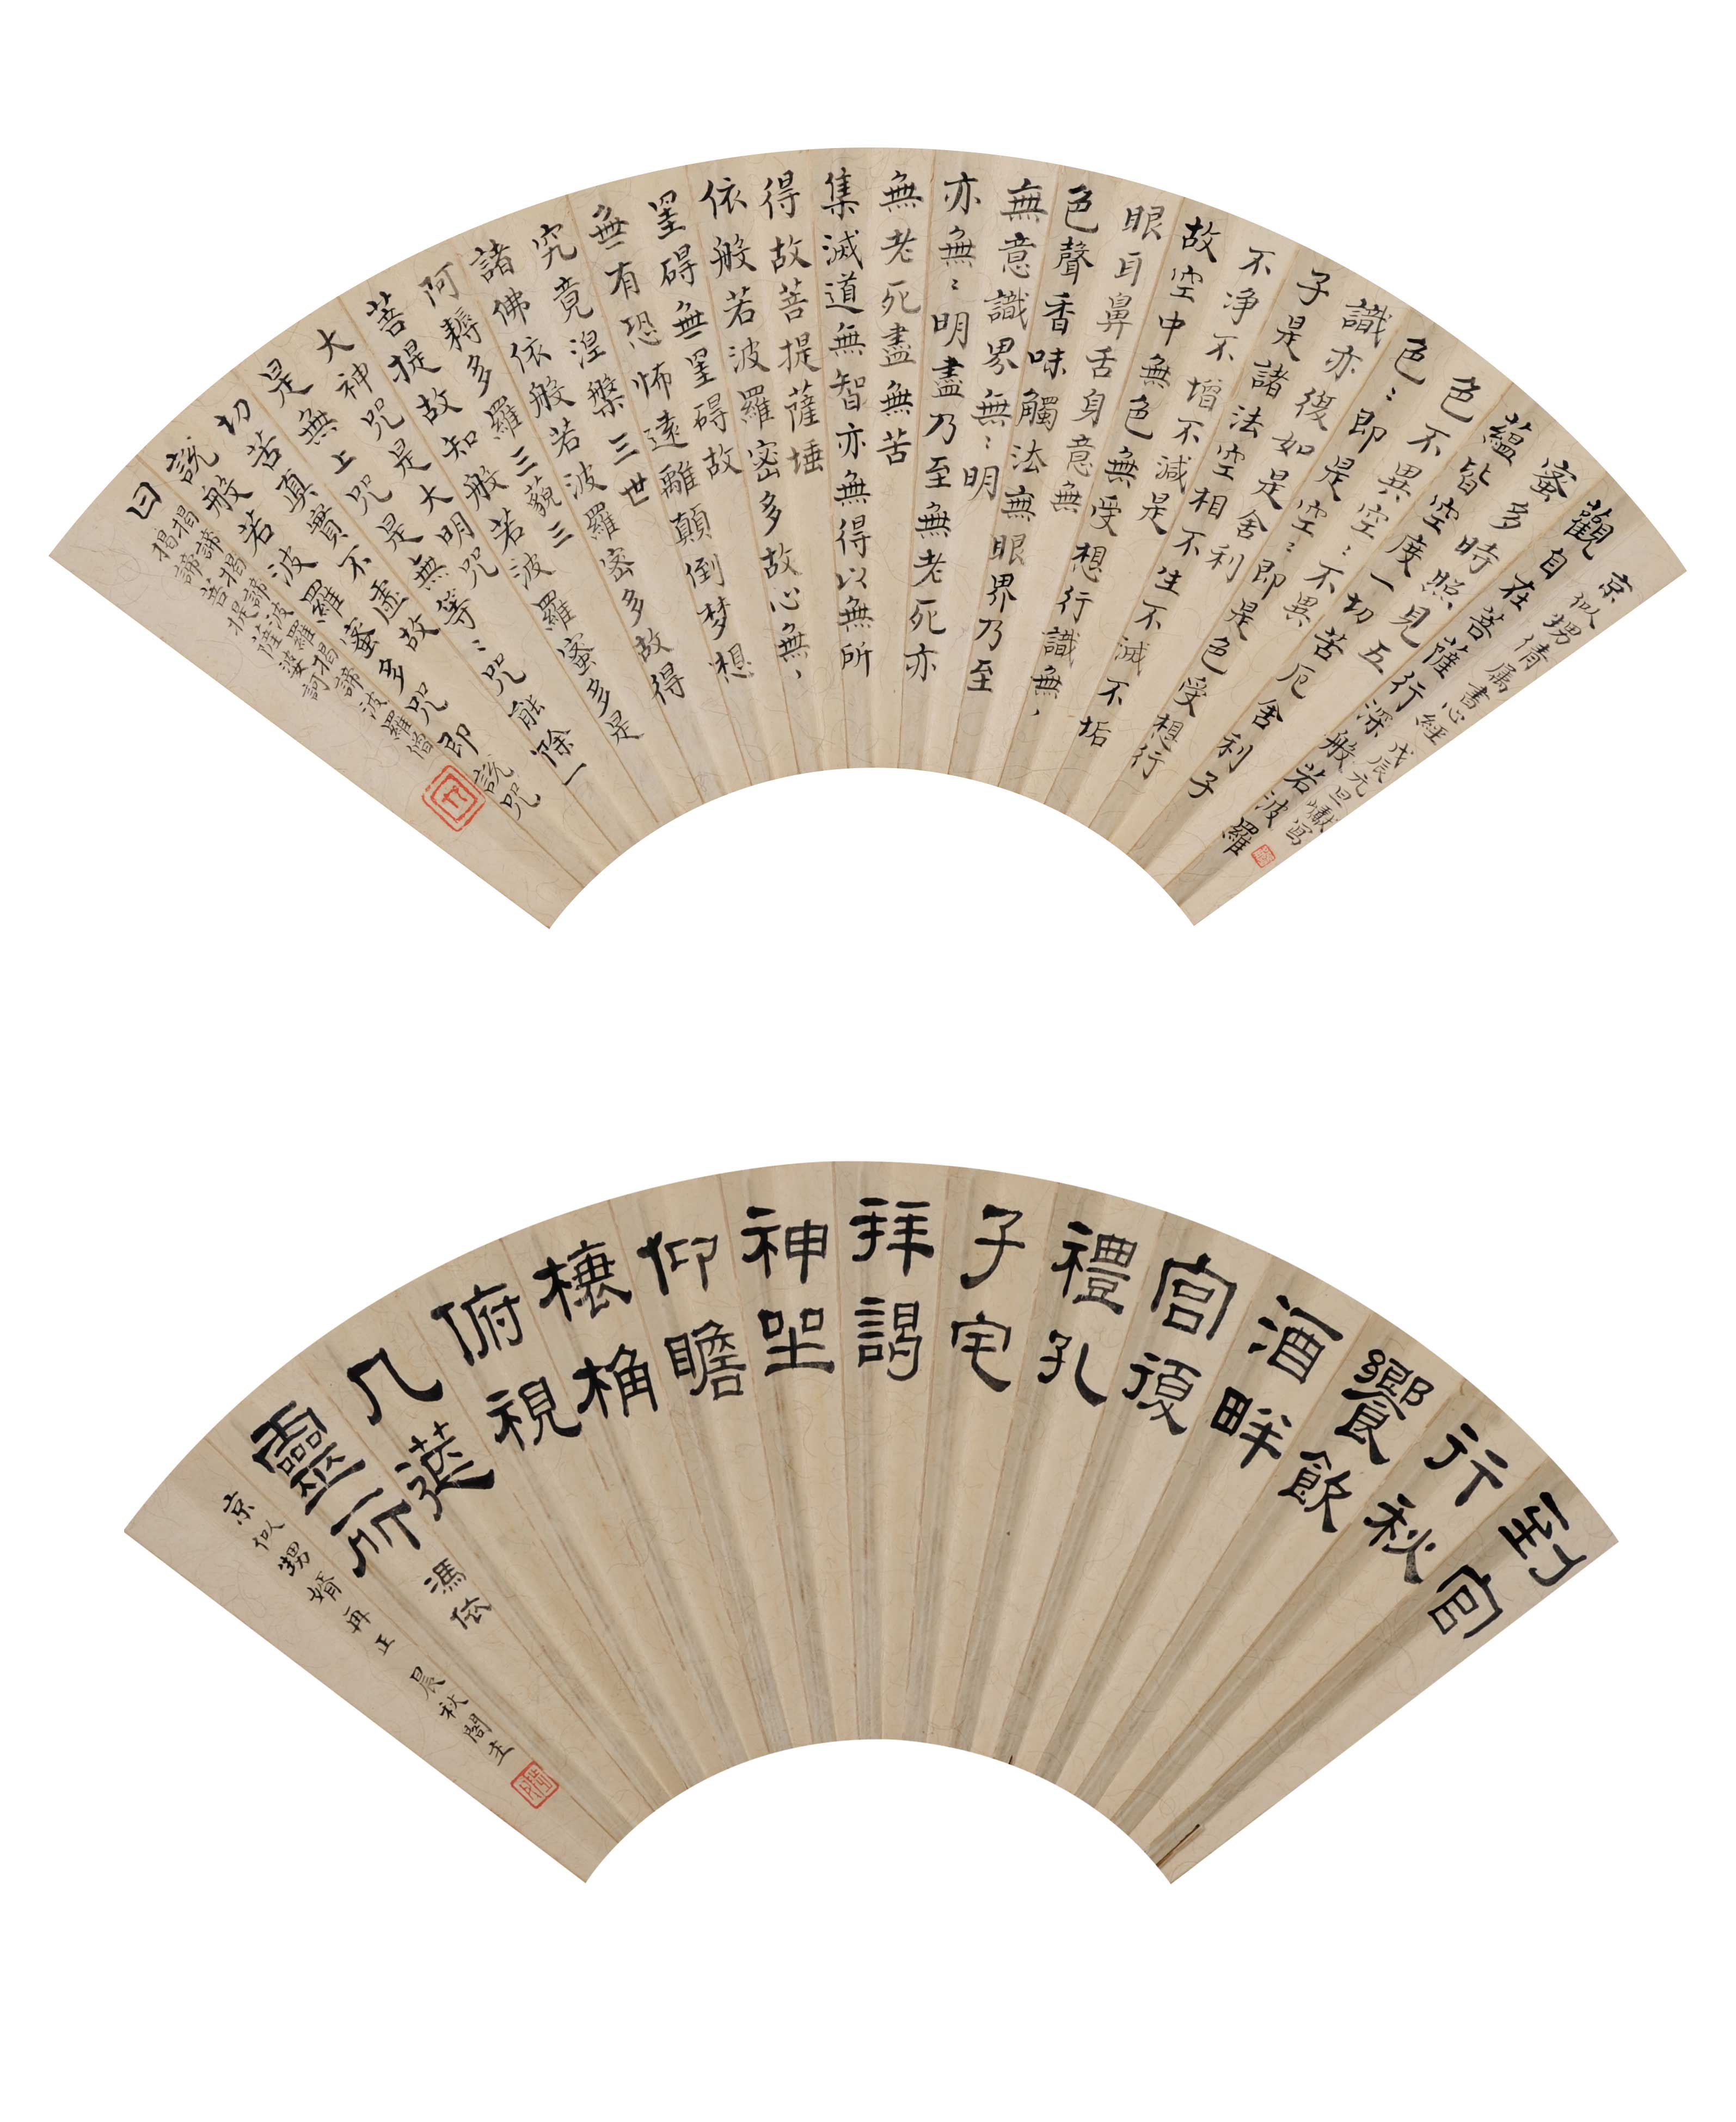 京似甥倩属書心經 戊辰元旦巘寫
觀自在菩薩行深般若波羅
蜜多時照見五
蘊皆空度一切苦厄舍利子
色不異空〻不異
色〻即是空〻即是色受想行
識亦復如是舍利
子是諸法空相不生不滅不垢
不淨不增不減是
故空中無色無受想行識無
眼耳鼻舌身意無
色聲香味觸法無眼界乃至
無意識界無〻明
亦無〻明盡乃至無老死亦
無老死盡無苦
集滅道無智亦無得以無所
得故菩提薩埵
依般若波羅密多故心無
罣碍無罣碍故
無有恐怖遠離顛倒梦想
究竟涅槃三世
諸佛依般若波羅密多故得
阿耨多羅三藐三
菩提故知般若波羅蜜多是
大神咒是大明咒
是無上咒是無等〻咒能除一
切苦真實不虛故
說般若波羅蜜多咒即說咒
曰
揭諦揭諦波羅揭諦波羅僧
揭諦菩提薩婆訶
到官
行秋
饗飲
酒畔
宮復
禮孔
子宅
拜謁
神坐
仰瞻
榱桷
俯視
几筵
靈所
馮依
京似甥婿再正 晨秋閣主